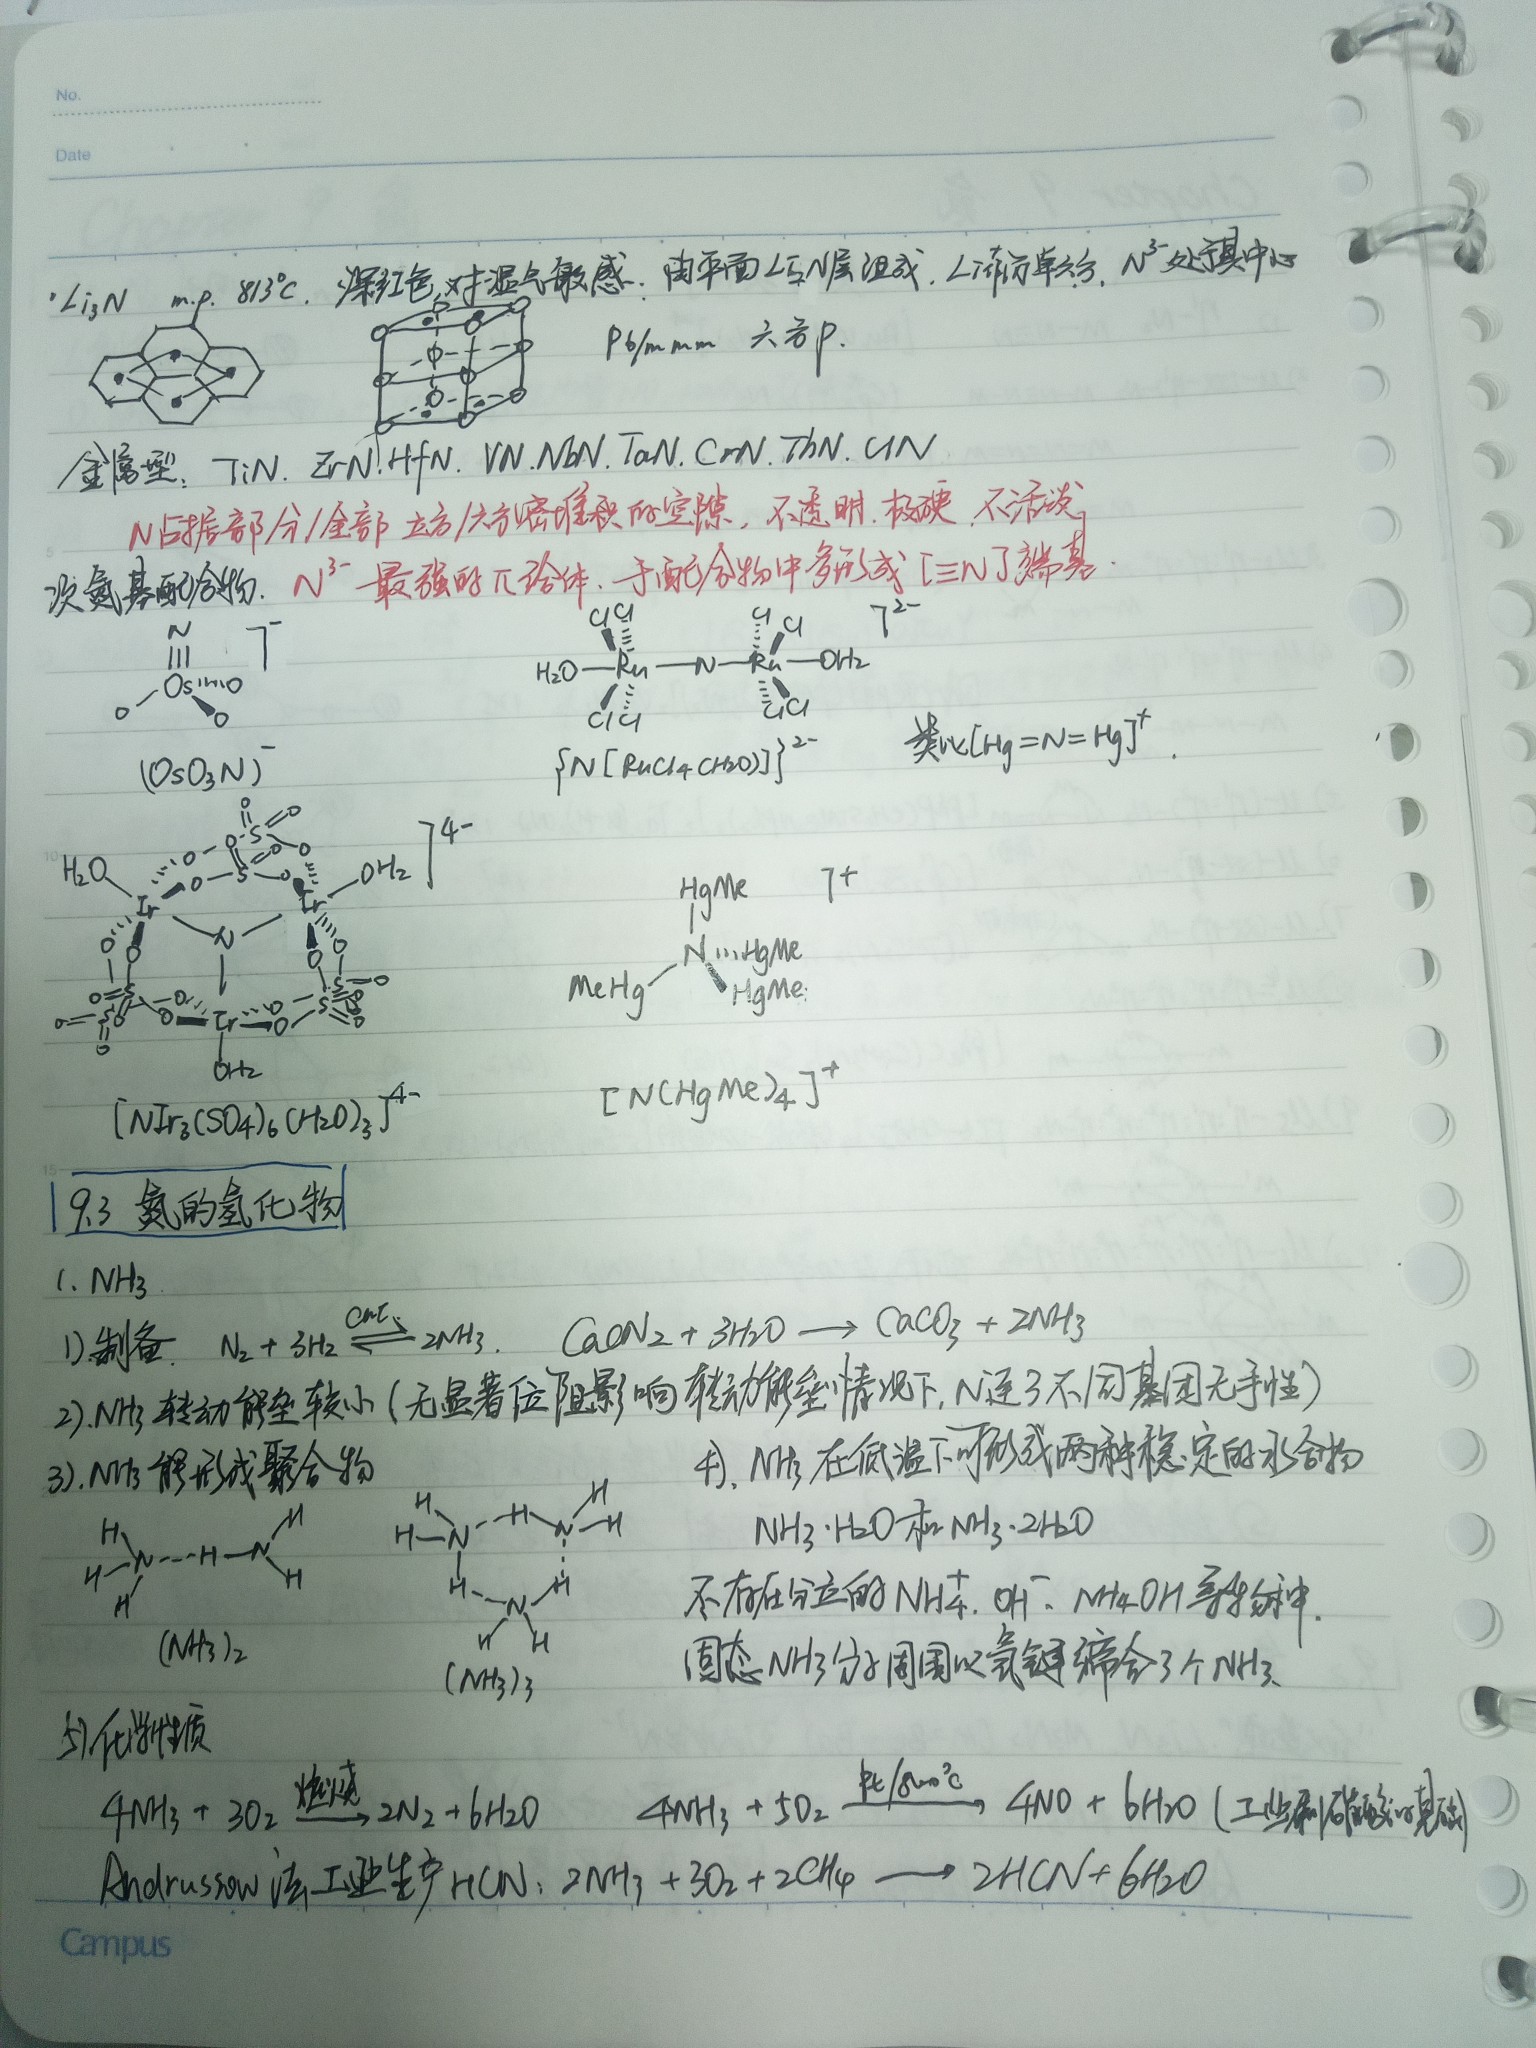 No.
Date
·Li₃N m.p. 813℃. 深红色,对湿气敏感. 由平面Li₃N层组成. Li 简单六方, N³⁻处于其中心
P6/mmm 六方P.
金属型: TiN. ZrN. HfN. VN. NbN. TaN. CrN. ThN. UN
N占据部分/全部 立方/六方密堆积的空隙, 不透明. 极硬. 不活泼
次氮基配合物. N³⁻ 最强的π给体. 于配合物中多形成[≡N]端基.
N ]⁻
Os O
O O
Cl Cl Cl Cl ]²⁻
H₂O—Ru—N—Ru—OH₂
Cl Cl Cl Cl
(OsO₃N)⁻ {N[RuCl₄(H₂O)]}²⁻ 类比[Hg=N=Hg]⁺.
H₂O Ir Ir OH₂ ]⁴⁻
N
Ir
OH₂
HgMe ]⁺
N HgMe
MeHg HgMe
[NIr₃(SO₄)₆(H₂O)₃]⁴⁻ [N(HgMe)₄]⁺
9.3 氮的氢化物
1. NH₃
1).制备. N₂ + 3H₂ ⇌ cat. 2NH₃. CaCN₂ + 3H₂O → CaCO₃ + 2NH₃
2).NH₃ 转动能垒较小(无显著位阻影响转动能垒情况下, N连3不同基团无手性)
3).NH₃能形成聚合物
4). NH₃在低温下可形成两种稳定的水合物
NH₃·H₂O和NH₃·2H₂O
不存在分立的NH₄⁺. OH⁻、NH₄OH等物种.
固态NH₃分子周围以氢键缔合3个NH₃.
H H N H N H H H
(NH₃)₂
H H N H N H H H N H H H
(NH₃)₃
5).化学性质
4NH₃ + 3O₂ 燃烧→ 2N₂ + 6H₂O 4NH₃ + 5O₂ Pt/800℃→ 4NO + 6H₂O (工业制硝酸的基础)
Andrussow法工业生产HCN: 2NH₃ + 3O₂ + 2CH₄ → 2HCN + 6H₂O
Campus